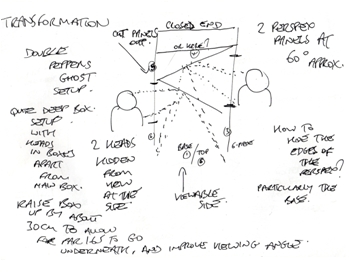 TRANSFORMATION
DOUBLE
PEPPERS
GHOST
SETUP.
QUITE DEEP BOX.
SETUP
WITH
HEADS
IN BOXES
APART
FROM
MAIN BOX.
RAISE BOX
UP BY ABOUT
30CM TO ALLOW
FOR PAR 16S TO GO
UNDERNEATH, AND IMPROVE VIEWING ANGLE.
2 HEADS
HIDDEN
FROM
VIEW
AT THE
SIDE.
CUT PANELS
OUT.
CLOSED END
OR HOLE?
BASE
/TOP
VIEWABLE
SIDE.
2 PERSPEX
PANELS AT
60° APPROX.
HOW TO
HIDE THE
EDGES OF
THE
PERSPEX?
PARTICULARLY THE
BASE.